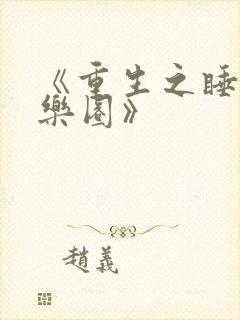 《重生之睡
樂園》
趙義